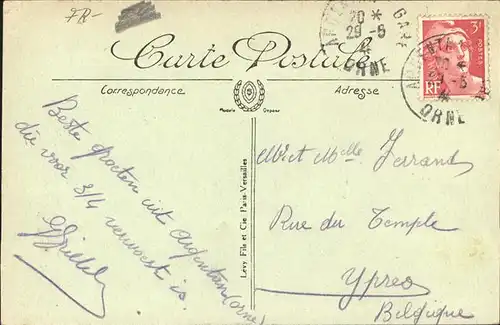 FR-
20 *
29-5
ORNE
GARE
3F
POSTES
RF
ARGENTAN
ORNE
Carte Postale
Correspondance
Adresse
Beste groeten uit Argentan (orne)
die voor 3/4 verwoest is
Mr et Melle Ferrand
Rue du Temple
Ypres
Belgique
Lévy Fils et Cie, Paris-Versailles